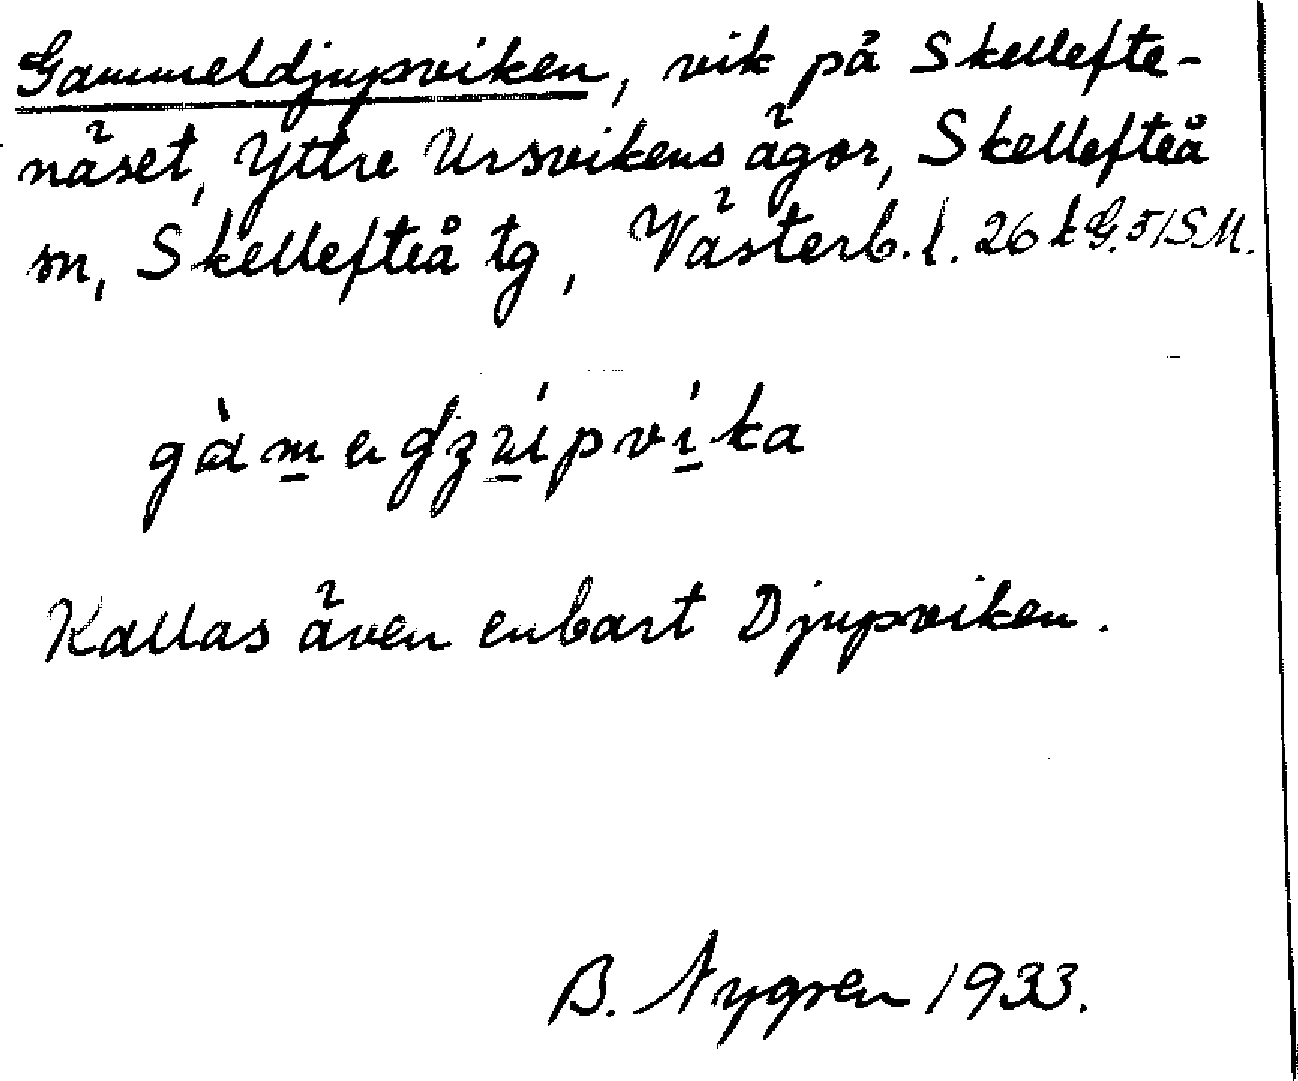 Gammeldjupviken, vik på Skellefte-
näset, Yttre Ursvikens ägor, Skellefteå
sn, Skellefteå tg, Västerb. l. 26 k G. 51 S.M.
Kallas även enbart Djupviken.
B. Nygren 1933.